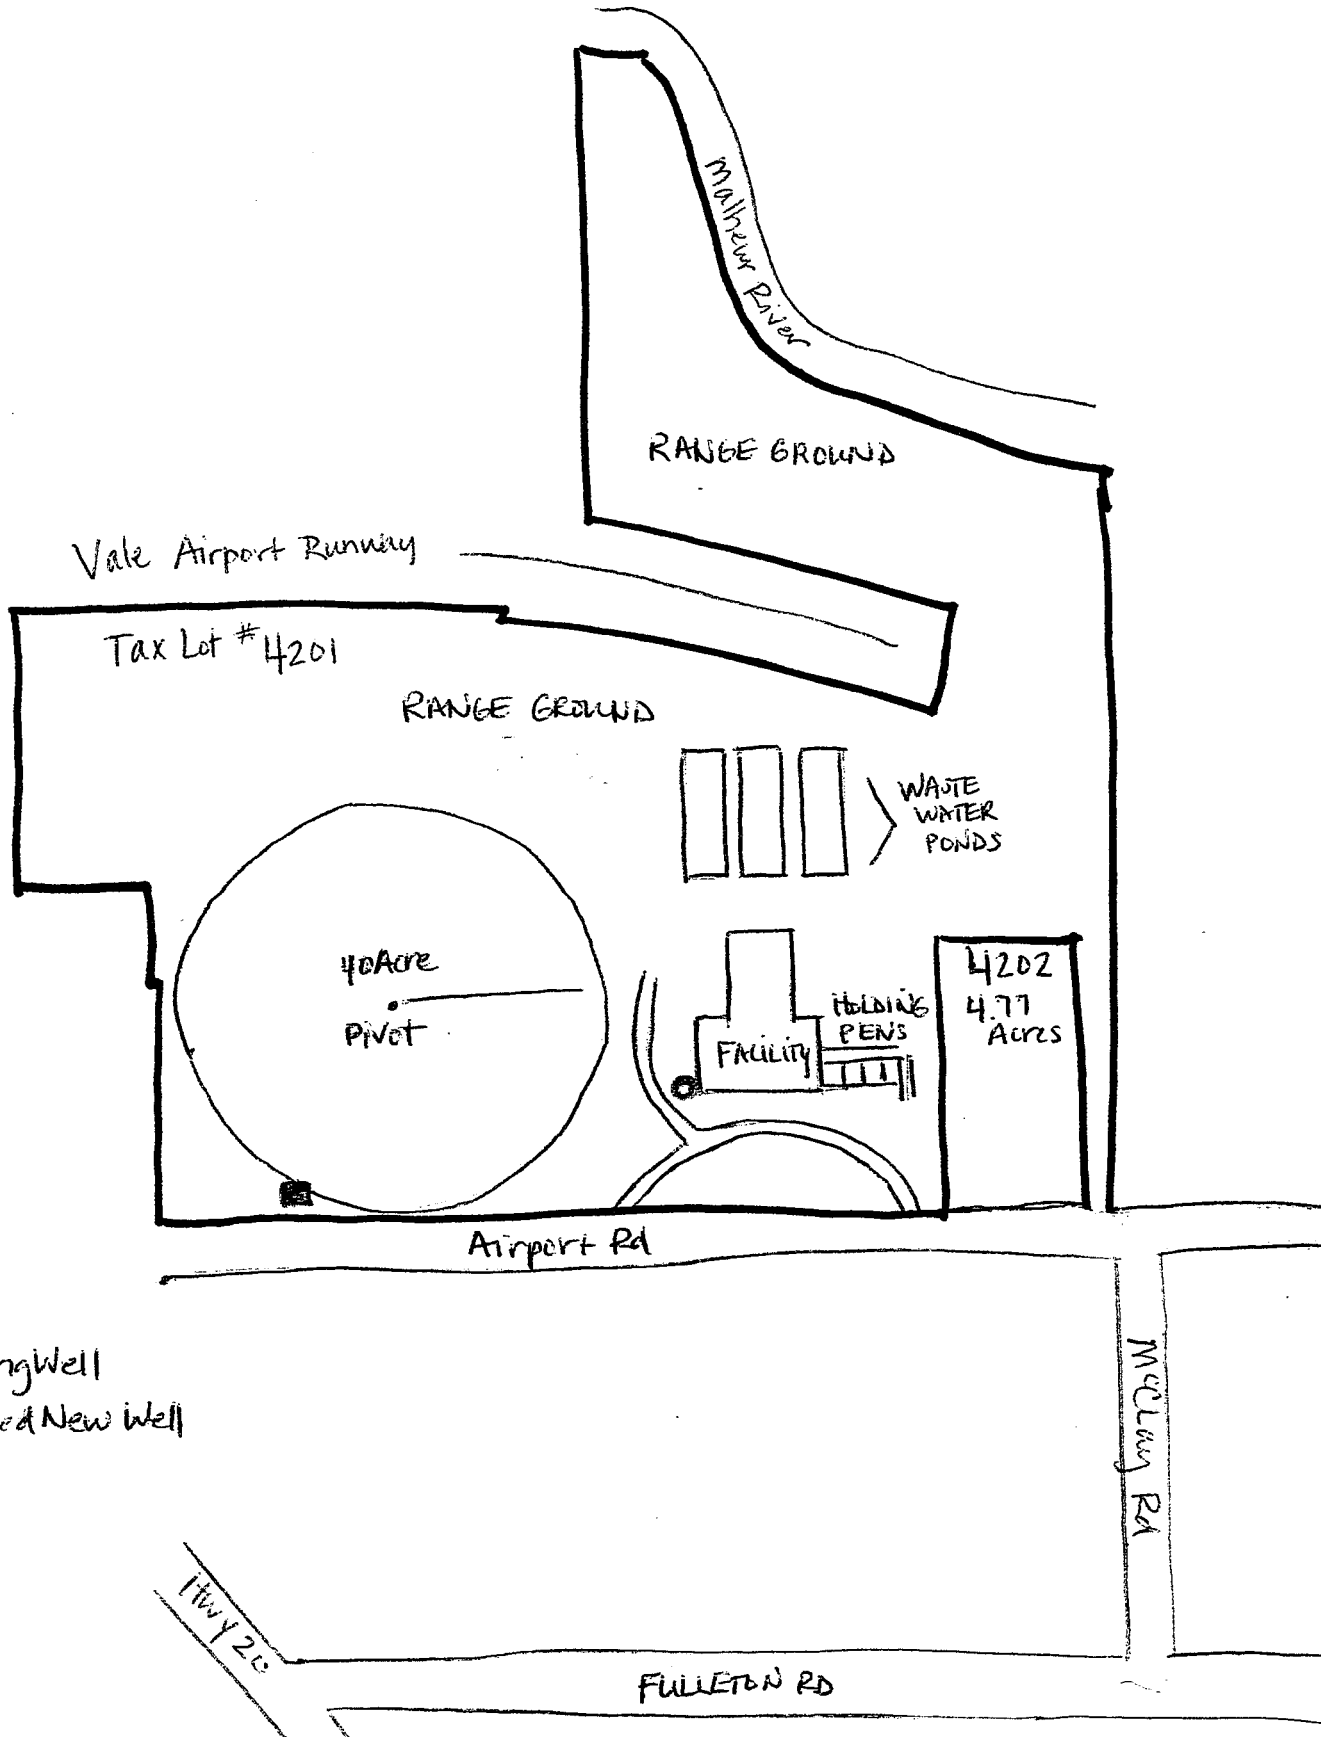 Malheur River
RANGE GROUND
Vale Airport Runway
Tax Lot # 4201
RANGE GROUND
WASTE
WATER
PONDS
40 Acre
Pivot
HOLDING
PENS
FACILITY
4202
4.77
Acres
Airport Rd
ngWell
ed New Well
McClay Rd
Hwy 20
FULLETON RD